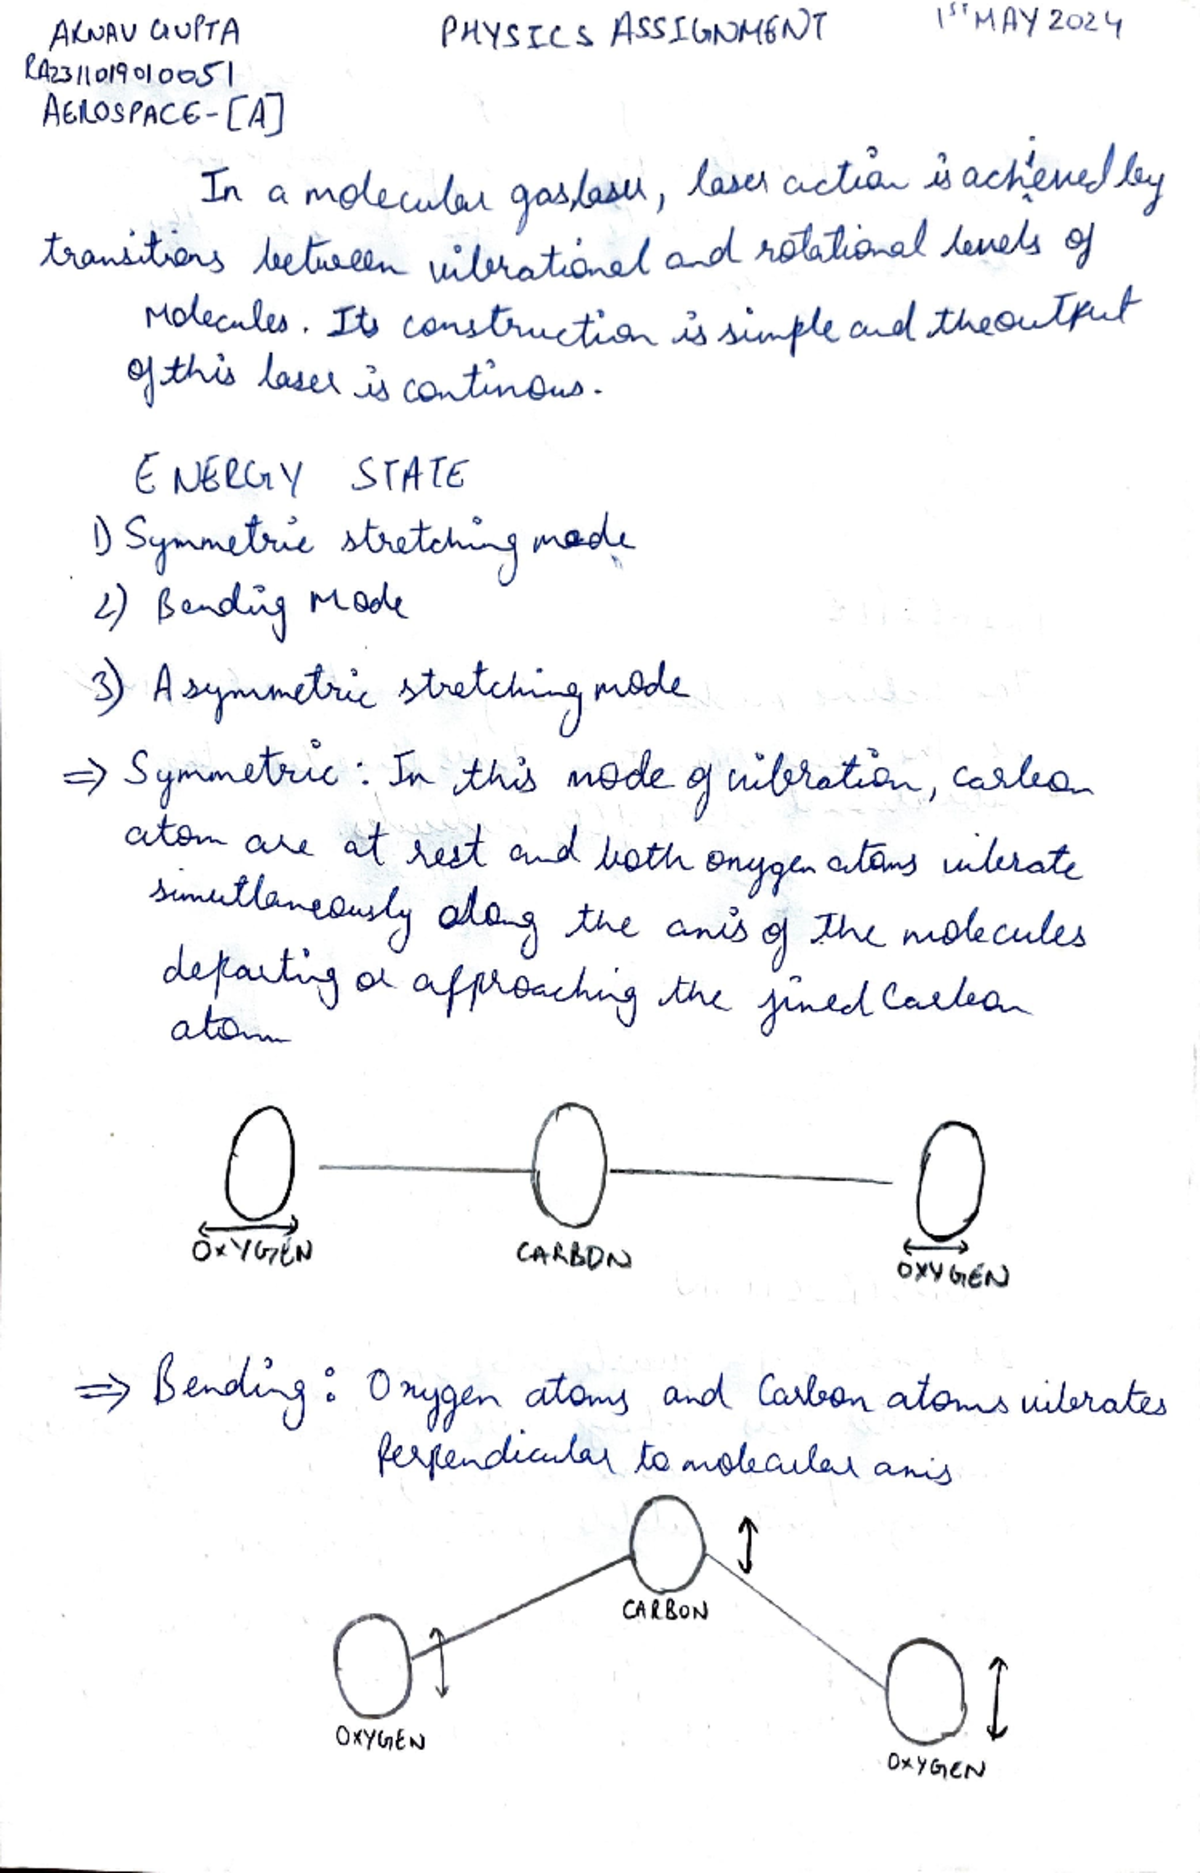 ARNAV GUPTA
PHYSICS ASSIGNMENT
1ST MAY 2024
RA2311019010051
AEROSPACE-[A]
In a molecular gas laser, laser action is achieved by
transitions between vibrational and rotational levels of
Molecules. Its construction is simple and the output
of this laser is continous.
ENERGY STATE
1) Symmetric stretching mode
2) Bending Mode
3) Asymmetric stretching mode
⇒ Symmetric: In this mode of vibration, carbon
atom are at rest and both oxygen atoms vibrate
simutlaneously along the axis of the molecules
departing or approaching the jined Carbon
atom
OXYGEN
CARBON
OXYGEN
⇒ Bending: Oxygen atoms and Carbon atoms vibrates
Perpendicular to molecular axis
CARBON
OXYGEN
OXYGEN